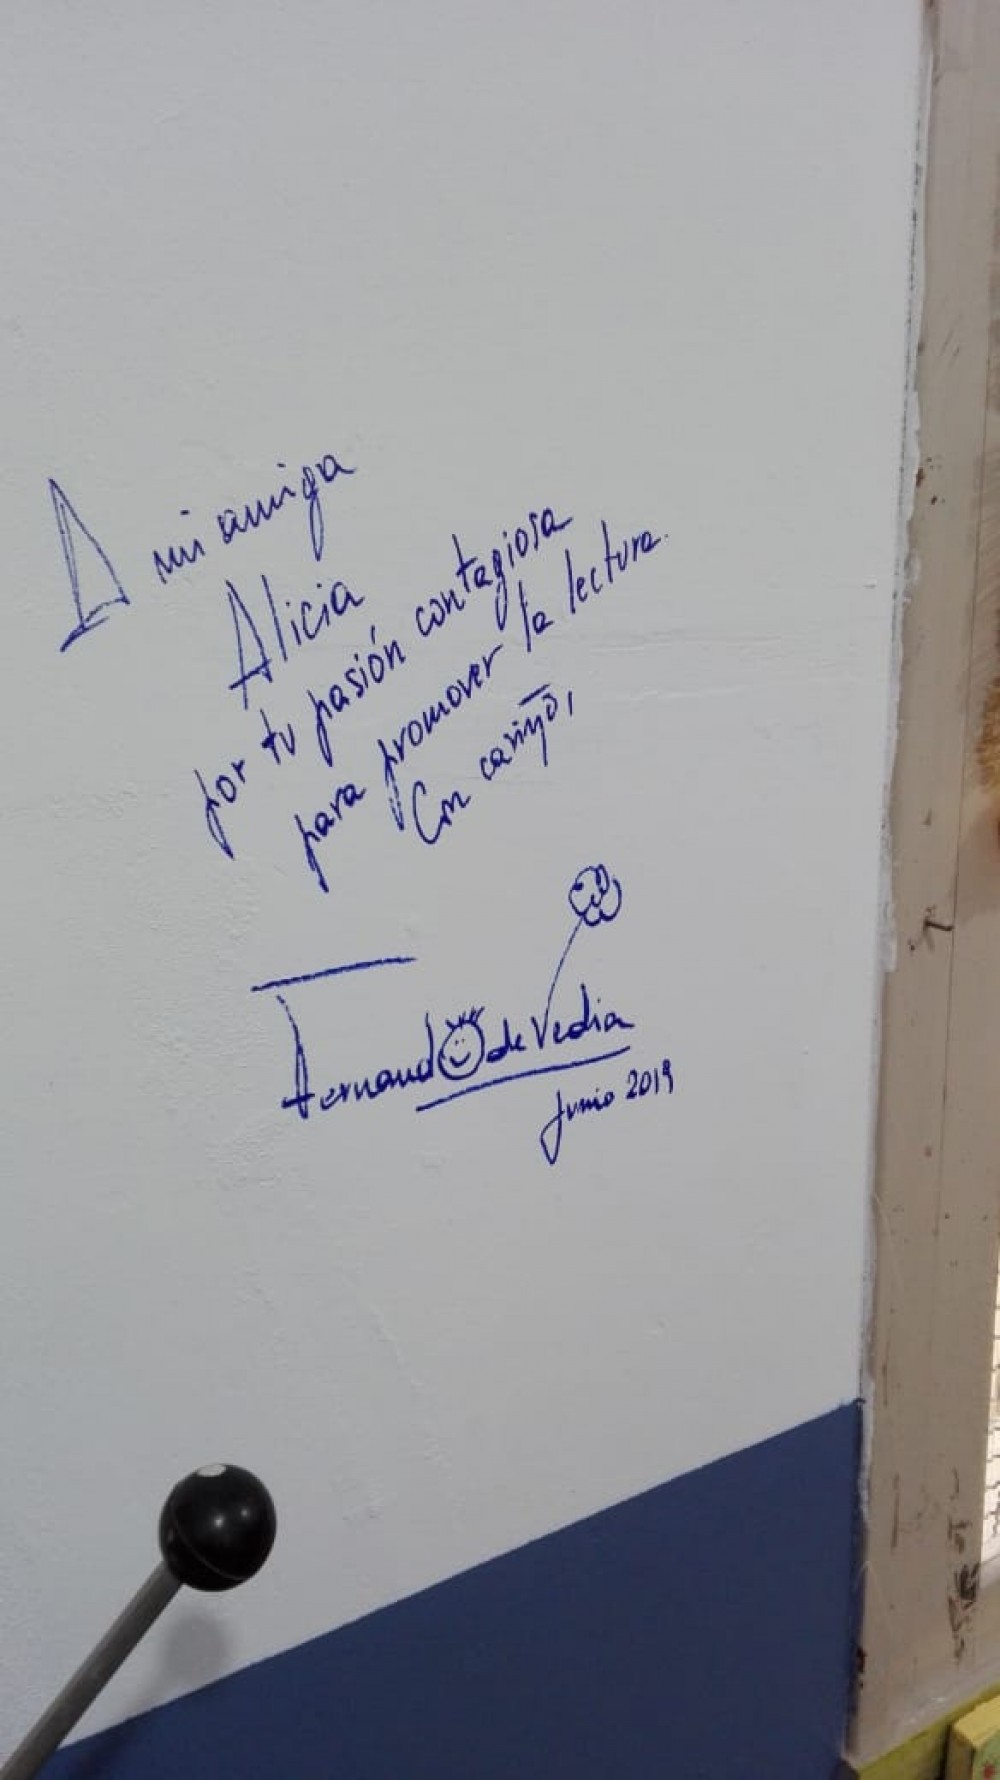 A mi amiga
Alicia
por tu pasión contagiosa
para promover la lectura.
Con cariño,
Fernando de Vedia
Junio 2019